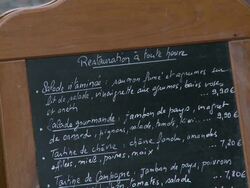 Restauration à toute heure
Salade vitaminée : saumon fumé et agrumes sur
lit de salade, vinaigrette aux agrumes, baies roses
et aneth 9,90€
Salade gourmande : jambon de pays, magret
de canard, pignons, salade, tomates, ... 9,90€
Tartine de chèvre : chèvre fondu, amandes
effilées, miel, poires, maïs 7,20€
Tartine de Campagne : jambon de pays, poivrons
tomates, salade 7,80€